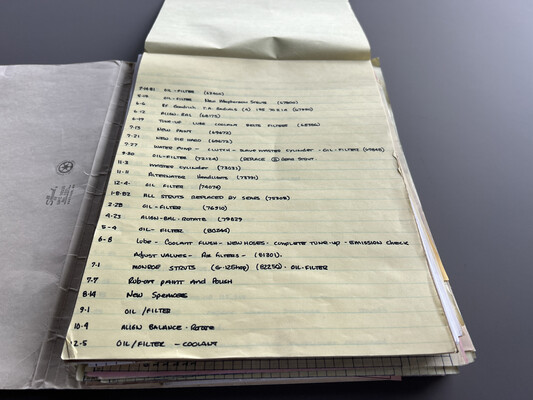 OIL-FILTER
OIL-FILTER New Macpherson Struts (67800)
6-6 B.F. Goodrich T.A. Radials (4)
6-12 ALIGN-BAL (68173)
6-19 TUNE-UP LUBE COOLANT BELTS FILTER
7-13 NEW PAINT (69672)
7-21 NEW
7-27 WATER PUMP - CLUTCH - MASTER CYLINDER - OIL-FILTER
OIL-FILTER (72124) (REPLACE
11-3 MASTER CYLINDER (73031)
11-11 ALTERNATOR HEADLIGHTS (73791)
12-4- OIL FILTER (74074)
1-8-82 ALL STRUTS REPLACED BY SEARS (75308)
2-28 OIL-FILTER (76910)
4-23 ALIGN-BAL-ROTATE (79029
5-9 OIL-FILTER (80244)
6-8 Lube- COOLANT FLUSH - NEW HOSES - COMPLETE TUNE-UP - EMISSION CHECK
ADJUST VALVES - AIR FILTERS- (81301)-
7-1 MONROE STRUTS (82250) - OIL-FILTER
7-7 RUB-OUT PAINT AND POLISH
8-14 NEW SPEAKERS
9-1 OIL/FILTER
10-9 ALIGN BALANCE - ROTATE
12-5 OIL/FILTER - COOLANT